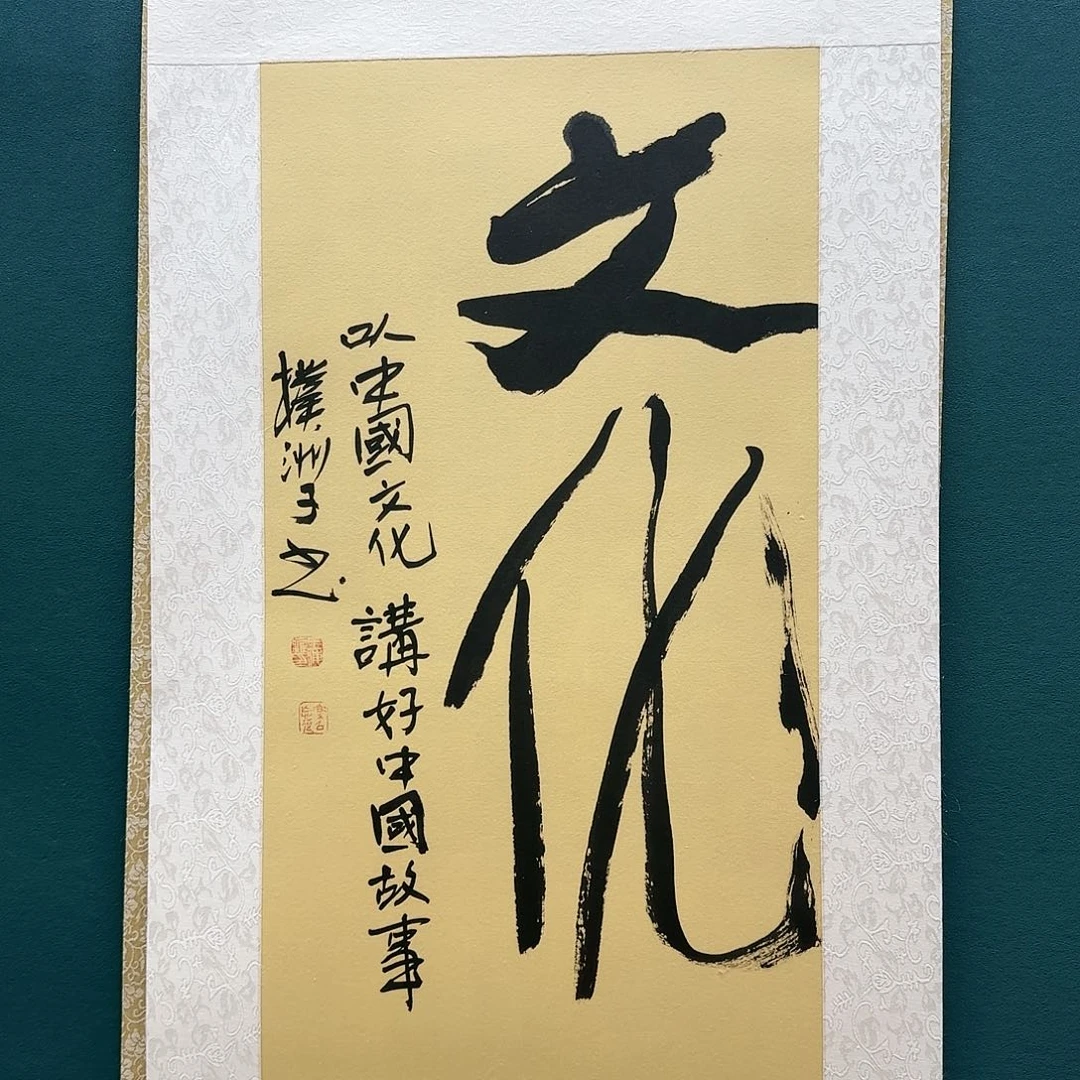 文化
以中國文化講好中國故事
撲洲子書